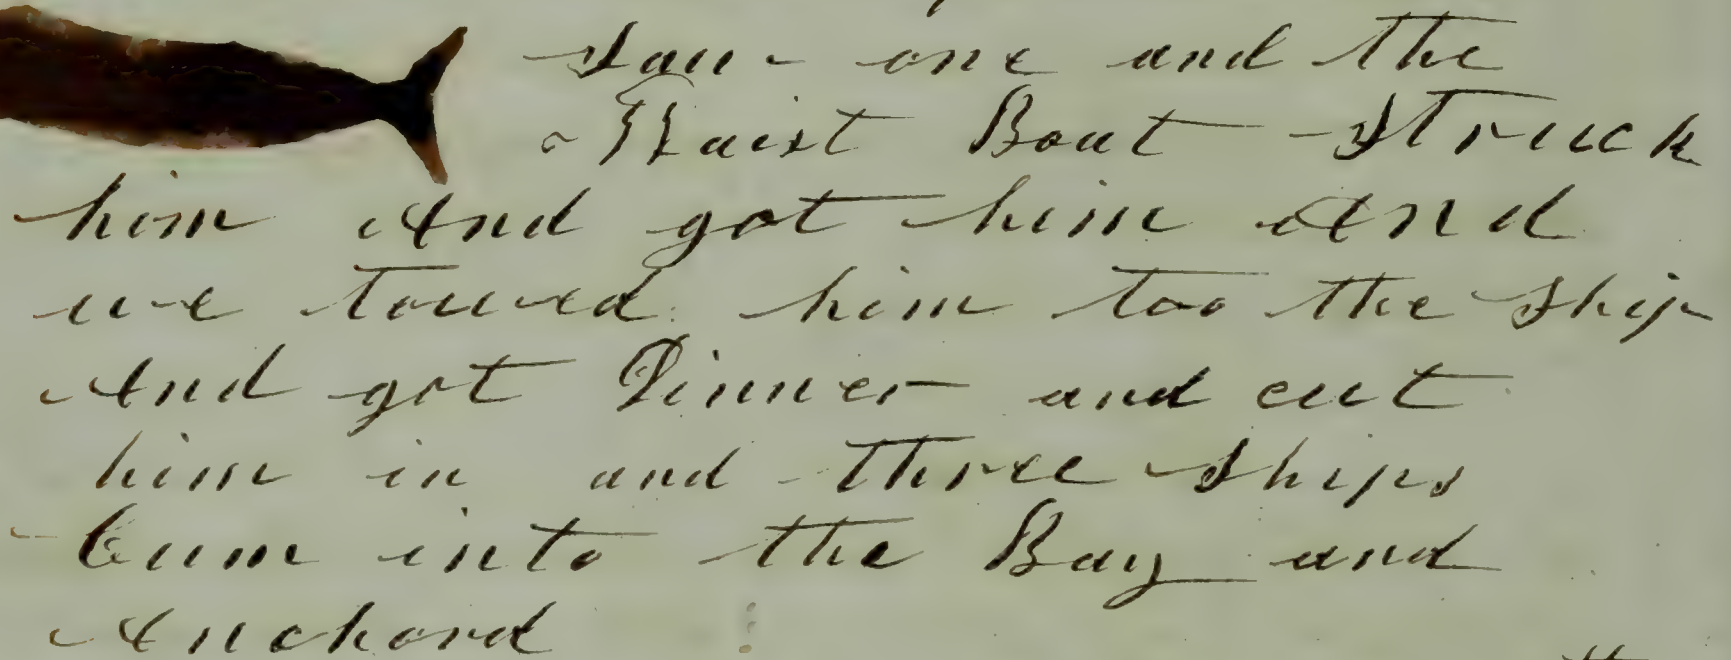 Sau one and the
Waist Boat Struck
him And got him And
we towed him too the Ship
And got Dinner and cut
him in and three Ships
Cum into the Bay and
Anchord